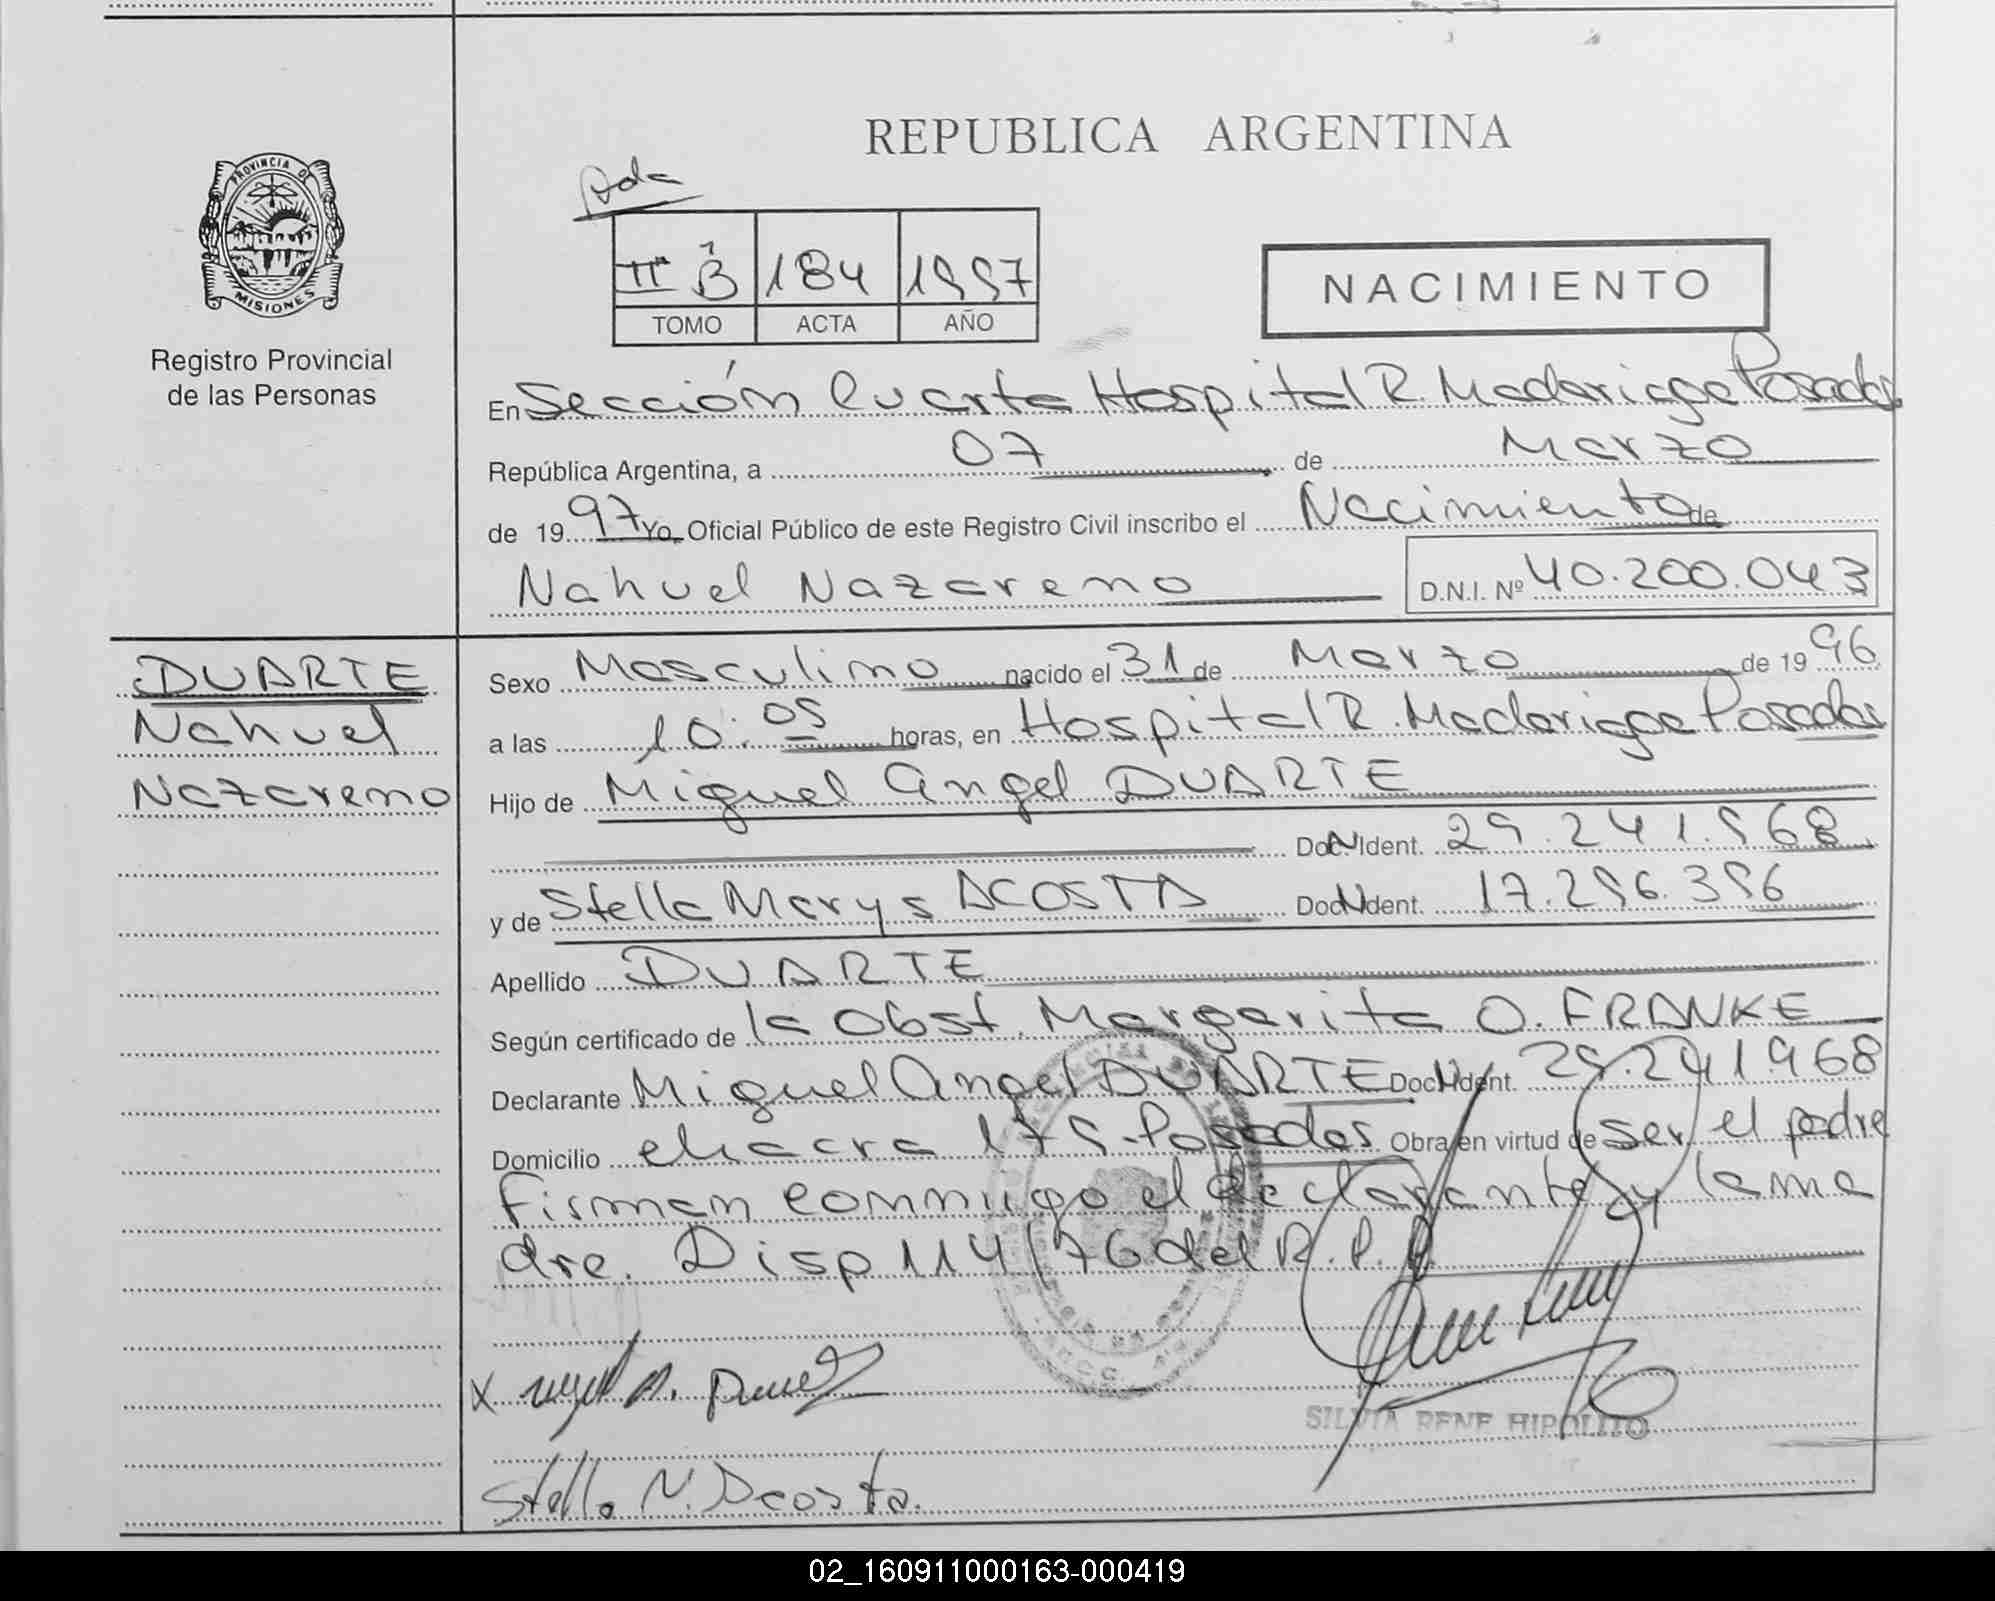 REPUBLICA ARGENTINA
PROVINCIA DE
MISIONES
Registro Provincial
de las Personas
Ada
II° B 184 1997
TOMO ACTA AÑO
NACIMIENTO
En Sección Cuarta Hospital R. Madariaga Posadas
República Argentina, a 07 de Marzo
de 1997 Yo, Oficial Público de este Registro Civil inscribo el Nacimiento de
Nahuel Nazareno D.N.I. Nº 40.200.043
DUARTE
Nahuel
Nazareno
Sexo Masculino nacido el 31 de Marzo de 1996
a las 10:05 horas, en Hospital R. Madariaga Posadas
Hijo de Miguel Angel DUARTE
Doc. Ident. 29.241.968
y de Stella Marys ACOSTA Doc. Ident. 17.296.396
Apellido DUARTE
Según certificado de la Obst. Margarita O. FRANKE
Declarante Miguel Angel DUARTE Doc. Ident. 29.241968
Domicilio chacra 179-Posadas Obra en virtud de ser el padre
Firman conmigo el declarante y la ma
dre. Disp 114/76 del R.P.P.
SILVIA RENE HIPOLITO
Stella N. Acosta.
02_160911000163-000419